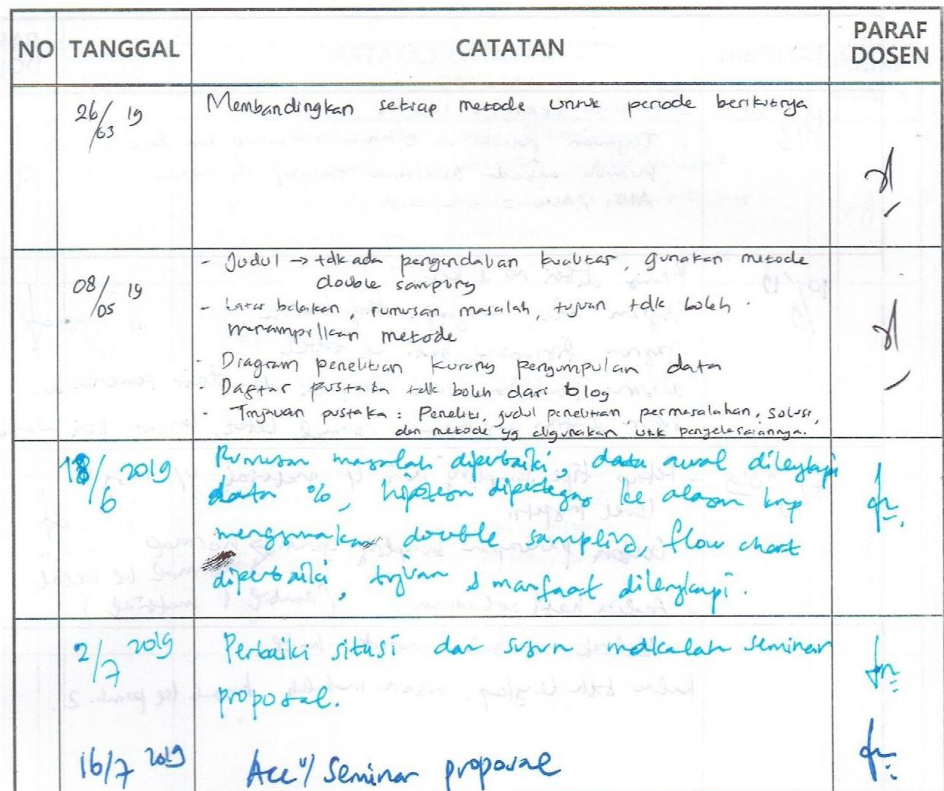 NO TANGGAL CATATAN PARAF DOSEN
26/03 19 Membandingkan setiap metode untuk periode berikutnya
08/05 19
- Judul → tdk ada pengendalian kualitas, gunakan metode
double sampling
- Latar belakan, rumusan masalah, tujuan tdk boleh
menampilkan metode
- Diagram penelitian kurang pengumpulan data
- Daftar pustaka tdk boleh dari blog
- Tinjauan pustaka : Peneliti, judul penelitian, permasalahan, solusi,
dan metode yg digunakan utk penyelesaiannya.
18/6 2019 Rumusan masalah diperbaiki, data awal dilengkapi
data %, dipertegas ke alasan knp
menggunakan double sampling, flow chart
diperbaiki, tujuan & manfaat dilengkapi.
2/7 2019 Perbaiki sitasi dan susun makalah seminar
proposal.
16/7 2019 Acc u/ Seminar proposal